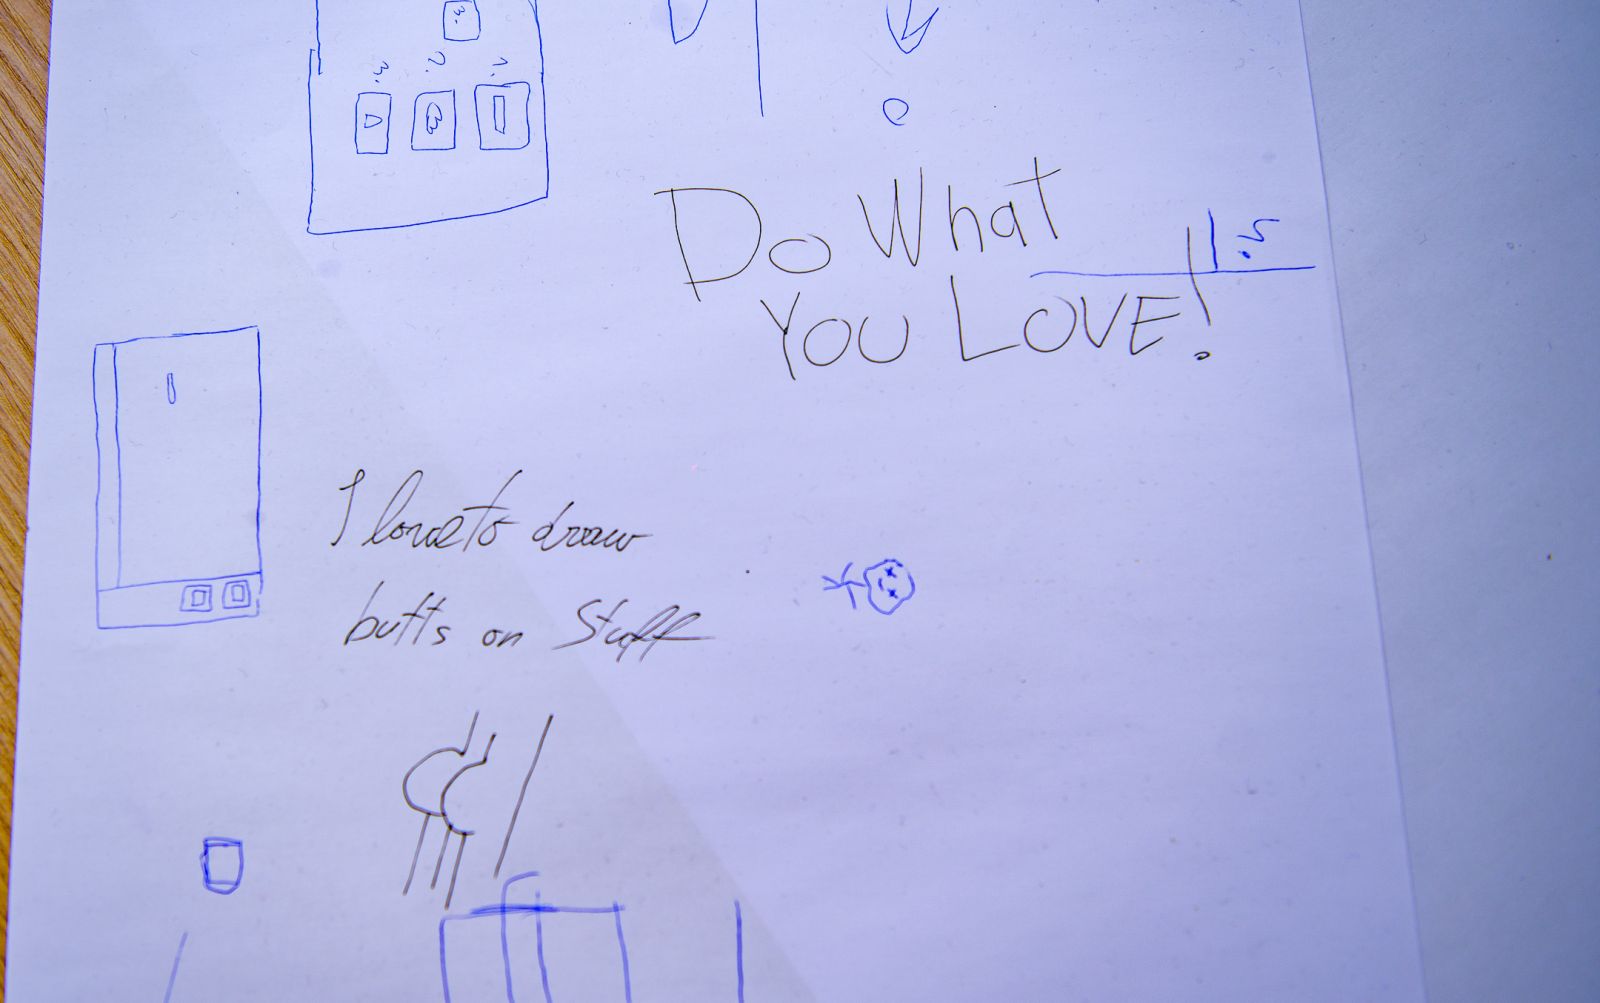 3.
3. 2. 1.
Do What
1.5
YOU LOVE!
I love to draw
butts on Stuff